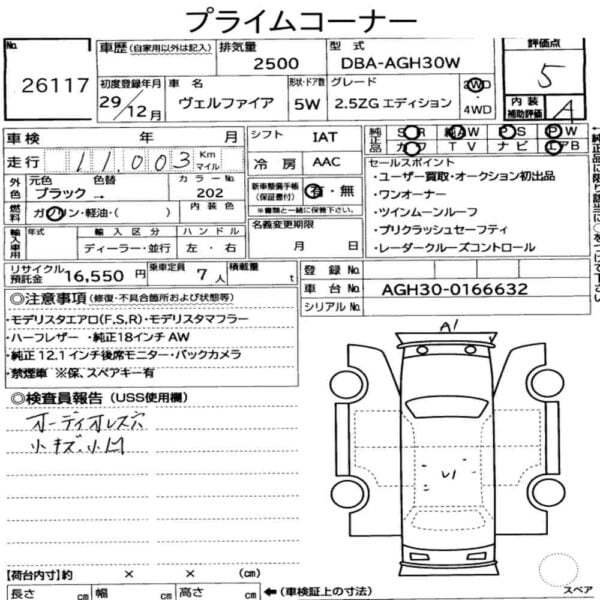 プライムコーナー
No. 26117
車歴 (自家用以外は記入) 排気量 2500 型式 DBA-AGH30W 評価点 5
初度登録年月 29年12月 車名 ヴェルファイア 形状・ドア数 5W グレード 2.5ZG エディション 2WD・4WD 内装補助評価 A
車検 年 月 シフト IAT 純正品 SR 純AW PS PW
走行 11,003 Km マイル 冷房 AAC カワ TV ナビ エアB
外色 元色 ブラック → 色替 カラーNo. 202 新車整備手帳 (保証書付) 有・無 ※書類と一緒に保管下さい。
燃料 ガソリン・軽油・( ) 内装色 名義変更期限 月 日
輸入車用 年式 輸入区分 ディーラー・並行 ハンドル 左・右
セールスポイント
・ユーザー買取・オークション初出品
・ワンオーナー
・ツインムーンルーフ
・プリクラッシュセーフティ
・レーダークルーズコントロール
←純正品に限り該当に○をつけて下さい
リサイクル預託金 16,550 円 乗車定員 7人 積載量 t 登録No.
車台No. AGH30-0166632
シリアルNo.
◎注意事項 (修復・不具合箇所および状態等)
・モデリスタエアロ(F,S,R)・モデリスタマフラー
・ハーフレザー ・純正18インチAW
・純正12.1インチ後席モニター・バックカメラ
・禁煙車 ※保、スペアキー有
◎検査員報告 (USS使用欄)
オーディオレス穴
小キズ.小凹
A1
U1
【荷台内寸】約 × × (cm)
長さ cm 幅 cm 高さ cm ←(車検証上の寸法)
スペア